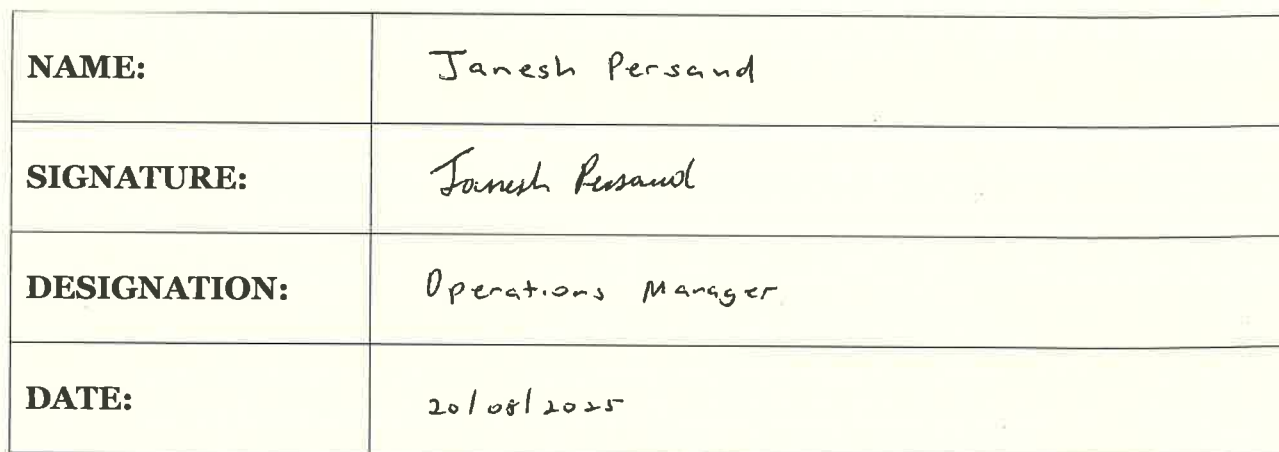 NAME: Janesh Persaud
SIGNATURE: Janesh Persaud
DESIGNATION: Operations Manager
DATE: 20/08/2025